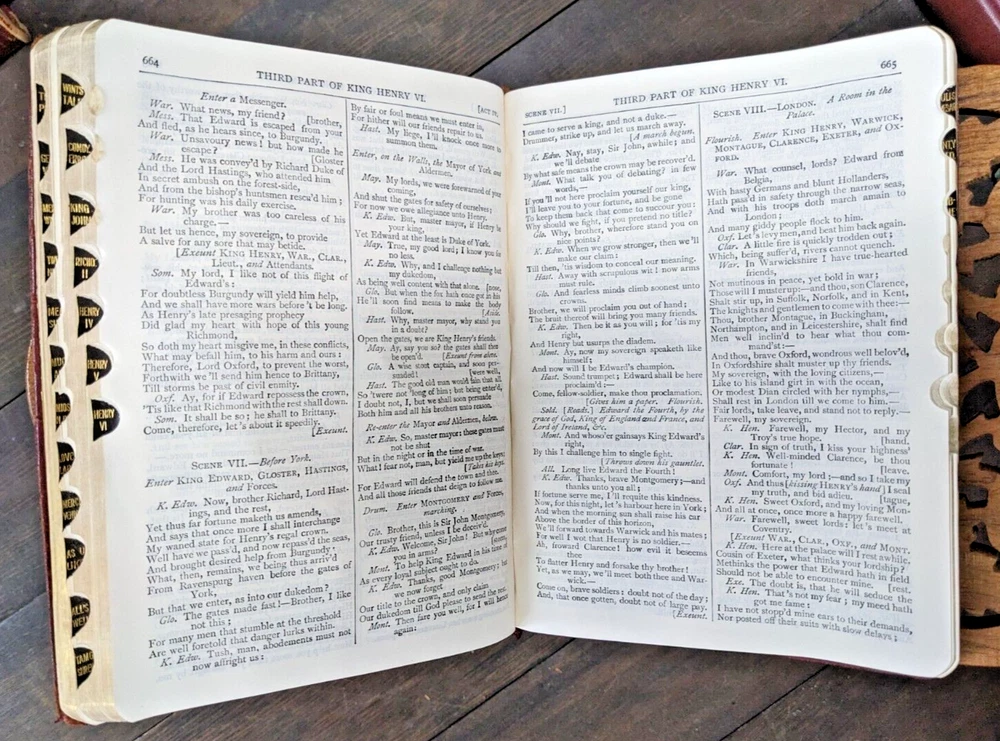 664
THIRD PART OF KING HENRY VI.
[ACT IV.
Enter a Messenger.
War. What news, my friend?
Mess. That Edward is escaped from your [brother,
And fled, as he hears since, to Burgundy.
War. Unsavoury news! but how made he
escape?
Mess. He was convey'd by Richard Duke of [Gloster
And the Lord Hastings, who attended him
In secret ambush on the forest-side,
And from the bishop's huntsmen rescu'd him;
For hunting was his daily exercise.
War. My brother was too careless of his
charge.—
But let us hence, my sovereign, to provide
A salve for any sore that may betide.
[Exeunt KING HENRY, WAR., CLAR.,
Lieut., and Attendants.
Som. My lord, I like not of this flight of
Edward's:
For doubtless Burgundy will yield him help,
And we shall have more wars before 't be long.
As Henry's late presaging prophecy
Did glad my heart with hope of this young
Richmond,
So doth my heart misgive me, in these conflicts,
What may befall him, to his harm and ours:
Therefore, Lord Oxford, to prevent the worst,
Forthwith we'll send him hence to Brittany,
Till storms be past of civil enmity.
Oxf. Ay, for if Edward repossess the crown,
'Tis like that Richmond with the rest shall down.
Som. It shall be so; he shall to Brittany.
Come, therefore, let's about it speedily.
[Exeunt.
SCENE VII.—Before York.
Enter KING EDWARD, GLOSTER, HASTINGS,
and Forces.
K. Edw. Now, brother Richard, Lord Hast-
ings, and the rest,
Yet thus far fortune maketh us amends,
And says that once more I shall interchange
My waned state for Henry's regal crown.
Well have we pass'd, and now repass'd the seas,
And brought desired help from Burgundy:
What, then, remains, we being thus arriv'd
From Ravenspurg haven before the gates of
York,
But that we enter, as into our dukedom?
Glo. The gates made fast!—Brother, I like
not this;
For many men that stumble at the threshold
Are well foretold that danger lurks within.
K. Edw. Tush, man, abodements must not
now affright us:
By fair or foul means we must enter in,
For hither will our friends repair to us.
Hast. My liege, I'll knock once more to
summon them.
Enter, on the Walls, the Mayor of York and
Aldermen.
May. My lords, we were forewarned of your
coming,
And shut the gates for safety of ourselves;
For now we owe allegiance unto Henry.
K. Edw. But, master mayor, if Henry be
your king,
Yet Edward at the least is Duke of York.
May. True, my good lord; I know you for
no less.
K. Edw. Why, and I challenge nothing but
my dukedom,
As being well content with that alone.
Glo. But when the fox hath once got in his [nose,
He'll soon find means to make the body
follow. [Aside.
Hast. Why, master mayor, why stand you
in a doubt?
Open the gates, we are King Henry's friends.
May. Ay, say you so? the gates shall then
be open'd. [Exeunt from above.
Glo. A wise stout captain, and soon per-
suaded!
Hast. The good old man would fain that all [were well,
So 'twere not 'long of him; but being enter'd,
I doubt not, I, but we shall soon persuade
Both him and all his brothers unto reason.
Re-enter the Mayor and Aldermen, below.
K. Edw. So, master mayor: these gates must
not be shut
But in the night or in the time of war.
What! fear not, man, but yield me up the keys;
[Takes his keys.
For Edward will defend the town and thee,
And all those friends that deign to follow me.
Drum. Enter MONTGOMERY and Forces,
marching.
Glo. Brother, this is Sir John Montgomery,
Our trusty friend, unless I be deceiv'd.
K. Edw. Welcome, Sir John! But why come
you in arms?
Mont. To help King Edward in his time of [storm,
As every loyal subject ought to do.
K. Edw. Thanks, good Montgomery; but
we now forget
Our title to the crown, and only claim
Our dukedom till God please to send the rest.
Mont. Then fare you well, for I will hence
again:
665
THIRD PART OF KING HENRY VI.
SCENE VII.]
I came to serve a king, and not a duke.—
Drummer, strike up, and let us march away.
[A march begun.
K. Edw. Nay, stay, Sir John, awhile; and
we'll debate
By what safe means the crown may be recover'd.
Mont. What talk you of debating? in few
words,—
If you'll not here proclaim yourself our king,
I'll leave you to your fortune, and be gone
To keep them back that come to succour you:
Why should we fight, if you pretend no title?
Glo. Why, brother, wherefore stand you on
nice points?
K. Edw. When we grow stronger, then we'll
make our claim:
Till then, 'tis wisdom to conceal our meaning.
Hast. Away with scrupulous wit! now arms
must rule.
Glo. And fearless minds climb soonest unto
crowns.
Brother, we will proclaim you out of hand;
The bruit thereof will bring you many friends.
K. Edw. Then be it as you will; for 'tis my
right,
And Henry but usurps the diadem.
Mont. Ay, now my sovereign speaketh like
himself;
And now will I be Edward's champion.
Hast. Sound trumpet; Edward shall be here
proclaim'd:—
Come, fellow-soldier, make thou proclamation.
[Gives him a paper. Flourish.
Sold. [Reads.] Edward the Fourth, by the
grace of God, King of England and France, and
Lord of Ireland, &c.
Mont. And whoso'er gainsays King Edward's
right,
By this I challenge him to single fight.
[Throws down his gauntlet.
All. Long live Edward the Fourth!
K. Edw. Thanks, brave Montgomery;—and
thanks unto you all;
If fortune serve me, I'll requite this kindness.
Now, for this night, let's harbour here in York;
And when the morning sun shall raise his car
Above the border of this horizon,
We'll forward towards Warwick and his mates;
For well I wot that Henry is no soldier.—
Ah, froward Clarence! how evil it beseems
thee
To flatter Henry and forsake thy brother!
Yet, as we may, we'll meet both thee and War-
wick.—
Come on, brave soldiers: doubt not of the day;
And, that once gotten, doubt not of large pay.
[Exeunt.
SCENE VIII.—LONDON. A Room in the
Palace.
Flourish. Enter KING HENRY, WARWICK,
MONTAGUE, CLARENCE, EXETER, and OX-
FORD.
War. What counsel, lords? Edward from
Belgia,
With hasty Germans and blunt Hollanders,
Hath pass'd in safety through the narrow seas,
And with his troops doth march amain to
London;
And many giddy people flock to him.
Oxf. Let's levy men, and beat him back again.
Clar. A little fire is quickly trodden out;
Which, being suffer'd, rivers cannot quench.
War. In Warwickshire I have true-hearted
friends,
Not mutinous in peace, yet bold in war;
Those will I muster up:—and thou, son Clarence,
Shalt stir up, in Suffolk, Norfolk, and in Kent,
The knights and gentlemen to come with thee:—
Thou, brother Montague, in Buckingham,
Northampton, and in Leicestershire, shalt find
Men well inclin'd to hear what thou com-
mand'st:—
And thou, brave Oxford, wondrous well belov'd,
In Oxfordshire shalt muster up thy friends.
My sovereign, with the loving citizens,—
Like to his island girt in with the ocean,
Or modest Dian circled with her nymphs,—
Shall rest in London till we come to him.—
Fair lords, take leave, and stand not to reply.—
Farewell, my sovereign.
K. Hen. Farewell, my Hector, and my
Troy's true hope. [hand.
Clar. In sign of truth, I kiss your highness'
K. Hen. Well-minded Clarence, be thou
fortunate! [leave.
Mont. Comfort, my lord;—and so I take my
Oxf. And thus [kissing HENRY'S hand] I seal
my truth, and bid adieu. [tague,
K. Hen. Sweet Oxford, and my loving Mon-
And all at once, once more a happy farewell.
War. Farewell, sweet lords: let's meet at
Coventry.
[Exeunt WAR., CLAR., OXF., and MONT.
K. Hen. Here at the palace will I rest awhile.
Cousin of Exeter, what thinks your lordship?
Methinks the power that Edward hath in field
Should not be able to encounter mine.
Exe. The doubt is, that he will seduce the [rest.
K. Hen. That's not my fear; my meed hath
got me fame:
I have not stopp'd mine ears to their demands,
Nor posted off their suits with slow delays;
WINTS
TALE
COMDY
KING
JOHN
RICHD
II
HENRY
IV
HENRY
V
HENRY
VI